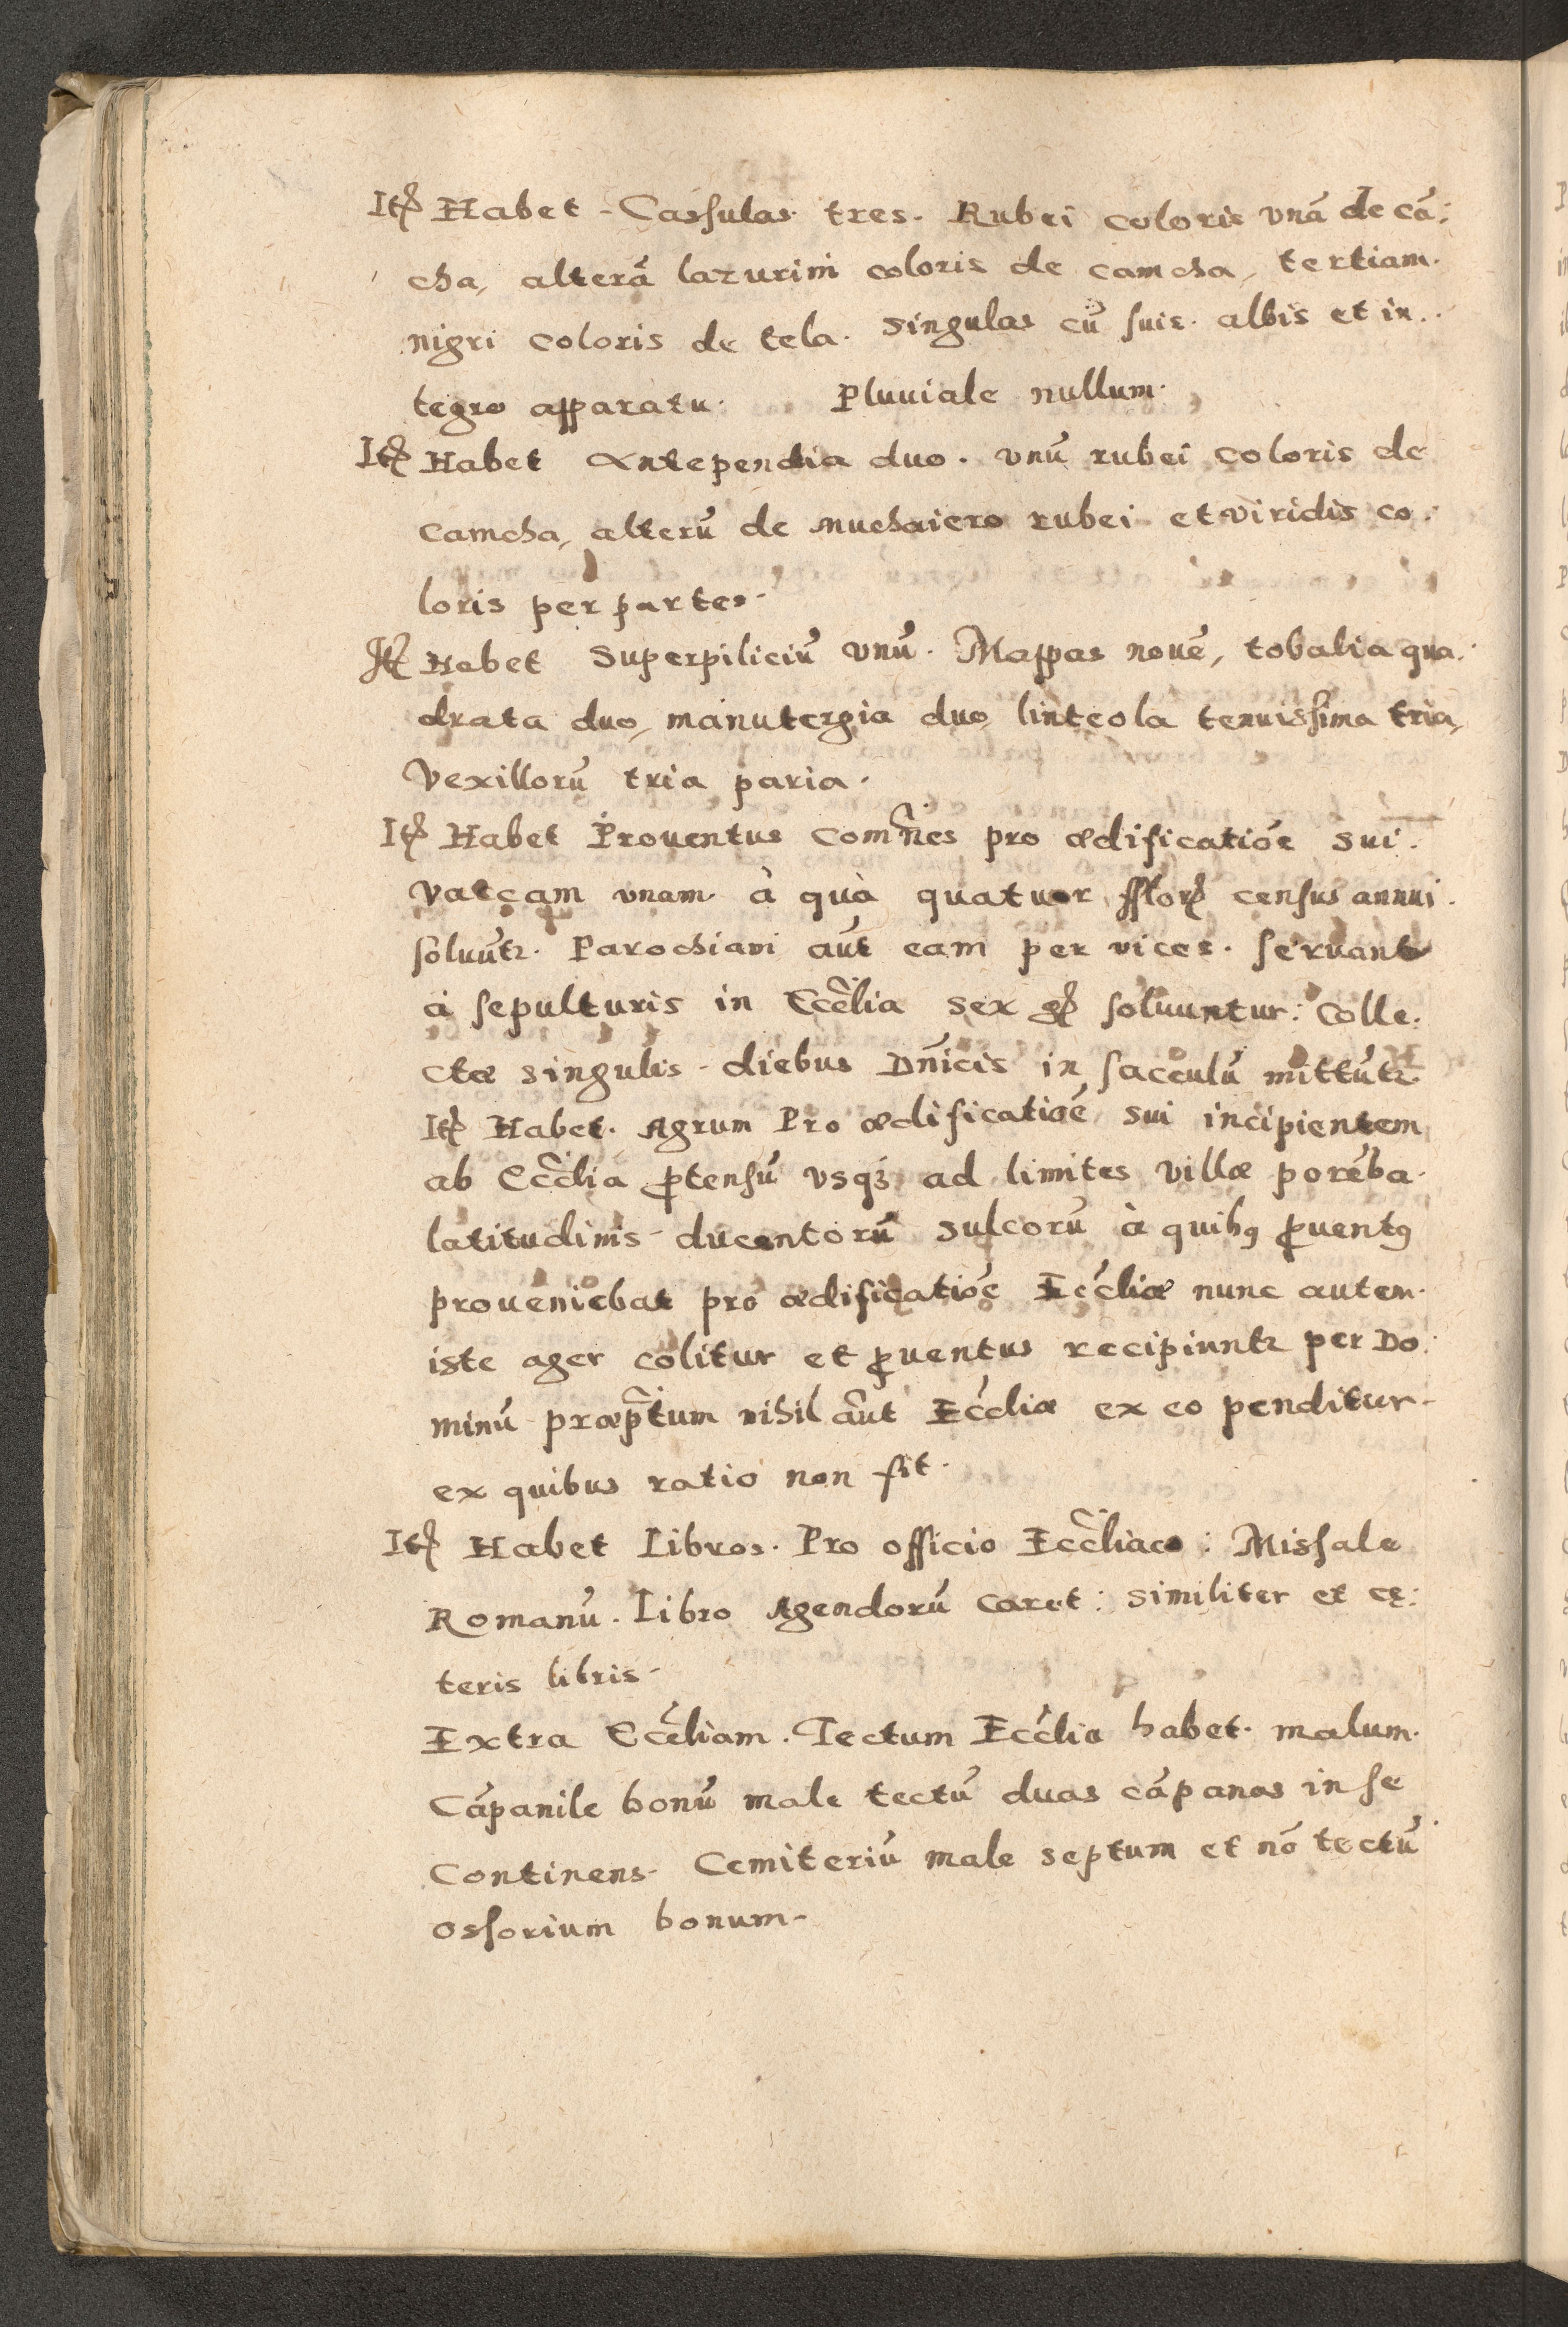 Itꝫ Habet - Cassulas tres. Rubei coloris vnā de cā:
cha, alterā lazurini coloris de camcha, tertiam.
nigri coloris de tela. Singulas cū suis. albis et in..
tegro apparatu. Pluuiale nullum.
Itꝫ Habet Antependia duo. vnū rubei coloris de
camcha, alterū de muchaiero rubei et viridis co:
loris per partes.
Itꝫ Habet Superpiliciū vnū. Mappas nouē, tobalia qua.
drata duo, manutergia duo, linteola tenuissima tria,
Vexillorū tria paria.
Itꝫ Habet Prouentus Com̃nes pro ædificatiōe sui.
Vaccam vnam à quà quatuor fflorꝫ census annui.
soluūtr. Parochiani aūt eam per vices. seruant
à sepulturis in Eccl̃ia sex gꝫ soluuntur: Colle:
ctæ singulis - diebus Dn̄icis in sacculū mittūtr.
Itꝫ Habet. Agrum Pro ædificatioē sui incipientem
ab Eccl̃ia ꝓtensū vsqꝫ ad limites villæ porēba.
latitudinis - ducentorū sulcorū à quibꝰ ꝓuentꝰ
proueniebat pro ædificatiōe Eccl̃iæ nunc autem.
iste ager colitur et ꝓuentus recipiuntr per Do:
minū præp̃tum nihil aũt Eccl̃iæ ex eo penditur-
ex quibus ratio non fit.
Itꝫ Habet Libros. Pro officio Eccl̃iaco: Missale
Romanū. Libro Agendorū caret: similiter et cę:
teris libris-
Extra Eccl̃iam. Tectum Eccl̃ia habet. malum.
Cāpanile bonū male tectū duas cāpanas in se
Continens. Cemiteriū male septum et nō tectū
ossorium bonum-